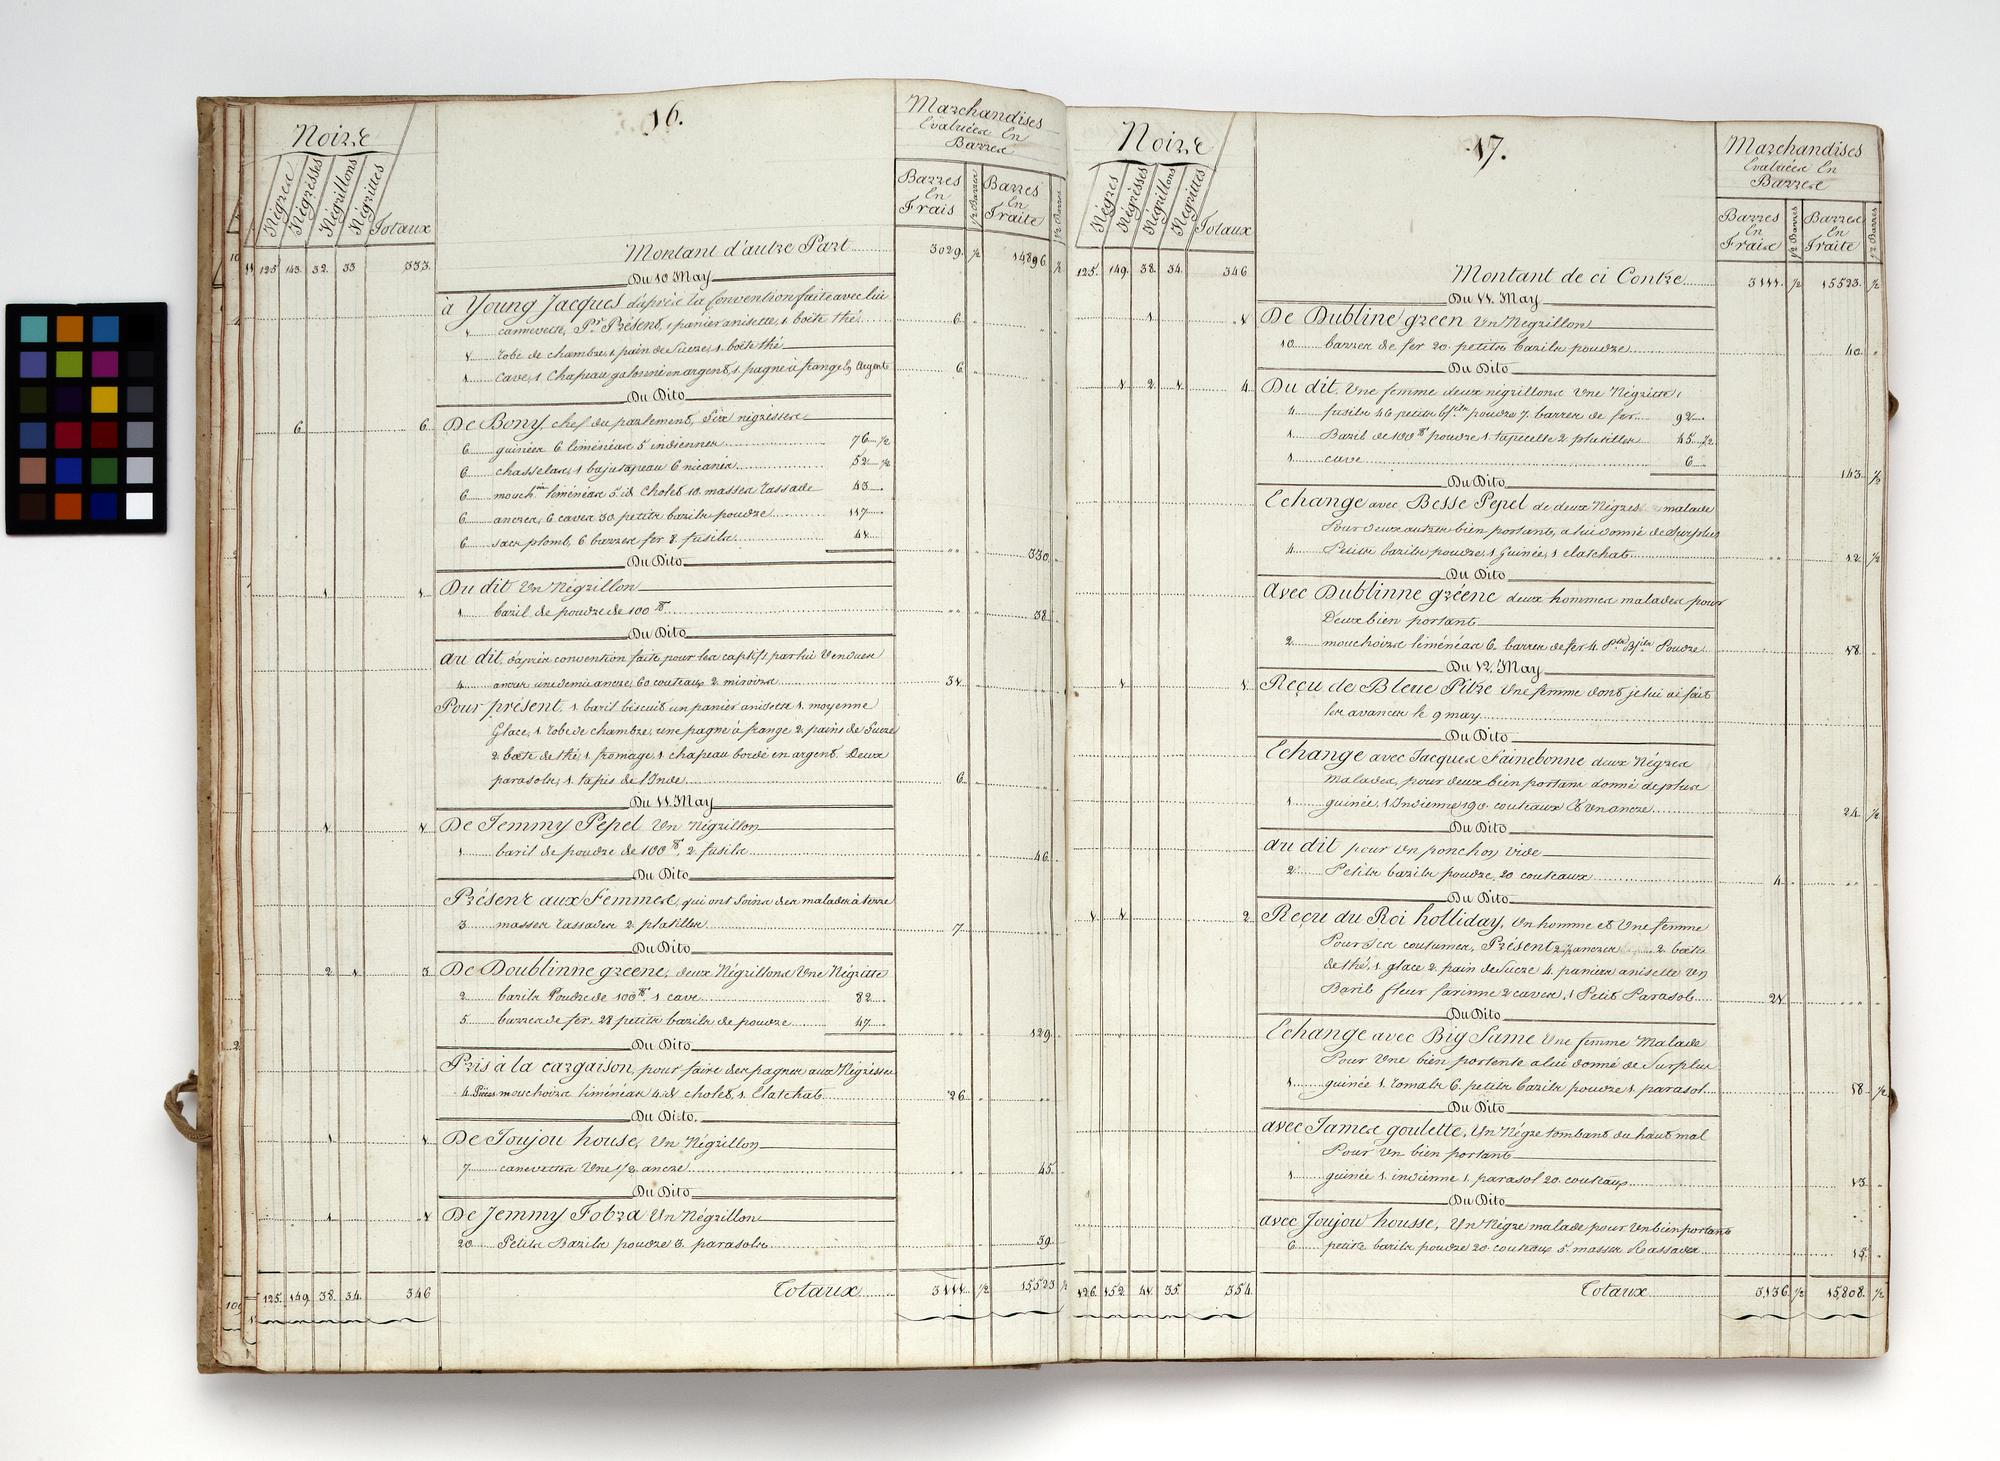 16.
Noirs
Négres Négresses Négrillons Négrittes Totaux
Marchandises
Evaluées En
Barres
Barres En Frais ½ Barres Barres En Traite ½ Barres
125 143. 32. 33 333. Montant d'autre Part 3029. ½ 14896. ½
Du 10 May
à Young Jacques d'après la Convention faite avec lui
1 cannevette, Pr. Présent, 1 panier anisette, 1 boëte thé 6
1 robe de chambre, 1 pain de Sucre, 1. boëte thé
1 cave, 1 Chapeau galonné en argent, 1. pagne à frange Argent 6
Du Dito
6 6 De Bony chef du parlement, Six négresses
6 guinées 6 liménéas 5 indiennes 76 ½
6 chasselas, 1 bajutapeau 6 nicanés 52 ½
6 mouch. liménéas 5. id Cholet 10. masses rassade 43
6 ancres, 6 caves 30. petits barils poudre 117
6 sacs plomb, 6 barres fer 8. fusils 41 330
Du Dito
1 1 Du dit Un Négrillon
1 baril de poudre de 100 lb 38
Du Dito
au dit, d'après convention faite pour les captifs par lui Vendues
4 ancres une demie ancre, 60 couteaux 2. miroirs 31
Pour présent, 1. baril biscuit un panier anisette 1. moyenne
Glace, 1. robe de chambre, une pagne à frange 2. pains de Sucre
2. boëte de thé, 1. fromage, 1 chapeau bordé en argent Deux
parasols, 1. tapis de l'Inde 6
Du 11. May
1 1 De Jemmy Pepel Un Négrillon
1 baril de poudre de 100 lb, 2. fusils 46
Du Dito
Présent aux Femmes, qui ont Soins des malades à terre
3 masses rassades 2. platilles 7
Du Dito
2 1 3 De Doublinne greene, deux Négrillons Une Négritte
2 barils Poudre de 100 lb 1 cave 82
5 barres de fer, 28 petits barils de poudre 47 129
Du Dito
Pris à la cargaison, pour faire des pagnes aux Négresses
4 Pièces mouchoirs liménéas 4. id cholet, 1. Elatchat 26
Du Dito.
1 1 De Joujou house, Un Négrillon
7 canevettes Une 1/2 ancre 45
Du Dito
1 1 De Jemmy Fobra Un Négrillon
20 Petits Barils poudre 3. parasols 39
125. 149. 38. 34. 346 Totaux 3111. ½ 15,523 ½
17.
Noirs
Négres Négresses Négrillons Négrittes Totaux
Marchandises
Evaluées En
Barres
Barres En Frais ½ Barres Barres En Traite ½ Barres
125. 149. 38. 34. 346 Montant de ci Contre 3111 ½ 15523. ½
Du 11. May
1 1 De Dubline green Un Négrillon
10 barres de fer 20. petits barils poudre 40
Du Dito
1 2 1 4 Du dit, Une femme deux négrillons Une Négritte,
4 fusils 46 petits poudre 7. barres de fer 92
1 Baril de 100 lb poudre 1. tapcelle 2. platilles 45 ½
1 cave 6 143. ½
Du Dito
Echange avec Besse Pepel de deux Négres malade
Pour deux autres bien portants, a lui donné de Surplus
4 Petits barils poudre, 1 Guinée, 1 elatchat 12 ½
Du Dito
Avec Dublinne gréene deux hommes malades pour
Deux bien portants
2 mouchoirs liménéas 6. barres de fer 4. Pts Bjls Poudre 18
Du 12. May
1 1 Reçu de Bleue Pitre Une femme dont je lui ai fait
les avances le 9 may
Du Dito
Echange avec Jacques Fainebonne deux Négres
malades, pour deux bien portans donné de plus
1 guinée, 1 Indienne 190. couteaux & Un ancre 24. ½
Du Dito
au dit pour Un ponchon vide
2 Petits barils poudre, 20 couteaux 4
Du Dito
1 1 2 Reçu du Roi holliday, Un homme et Une femme
Pour Ses coutumes, Présent 2 ancres 2. boëte
de thé, 1. glace 2. pain de Sucre 4. paniers anisette Un
Baril fleur farinne 2 caves, 1 Petit Parasol 21
Du Dito
Echange avec Big Same Une femme Malade
Pour Une bien portente a lui donné de Surplus
1 guinée 1. romals 6. petits barils poudre 1. parasol 18 ½
Du Dito
avec James goulette, Un Négre tombant du haut mal
Pour Un bien portant
1 guinée 1. indienne 1. parasol 20. couteaux 13
Du Dito
avec Joujou housse, Un Négre malade pour Un bien portant
6 petits barils poudre 20. couteaux 5. masses Rassades 15
126. 152 41 35. 354 Totaux 3,136. ½ 15,808. ½